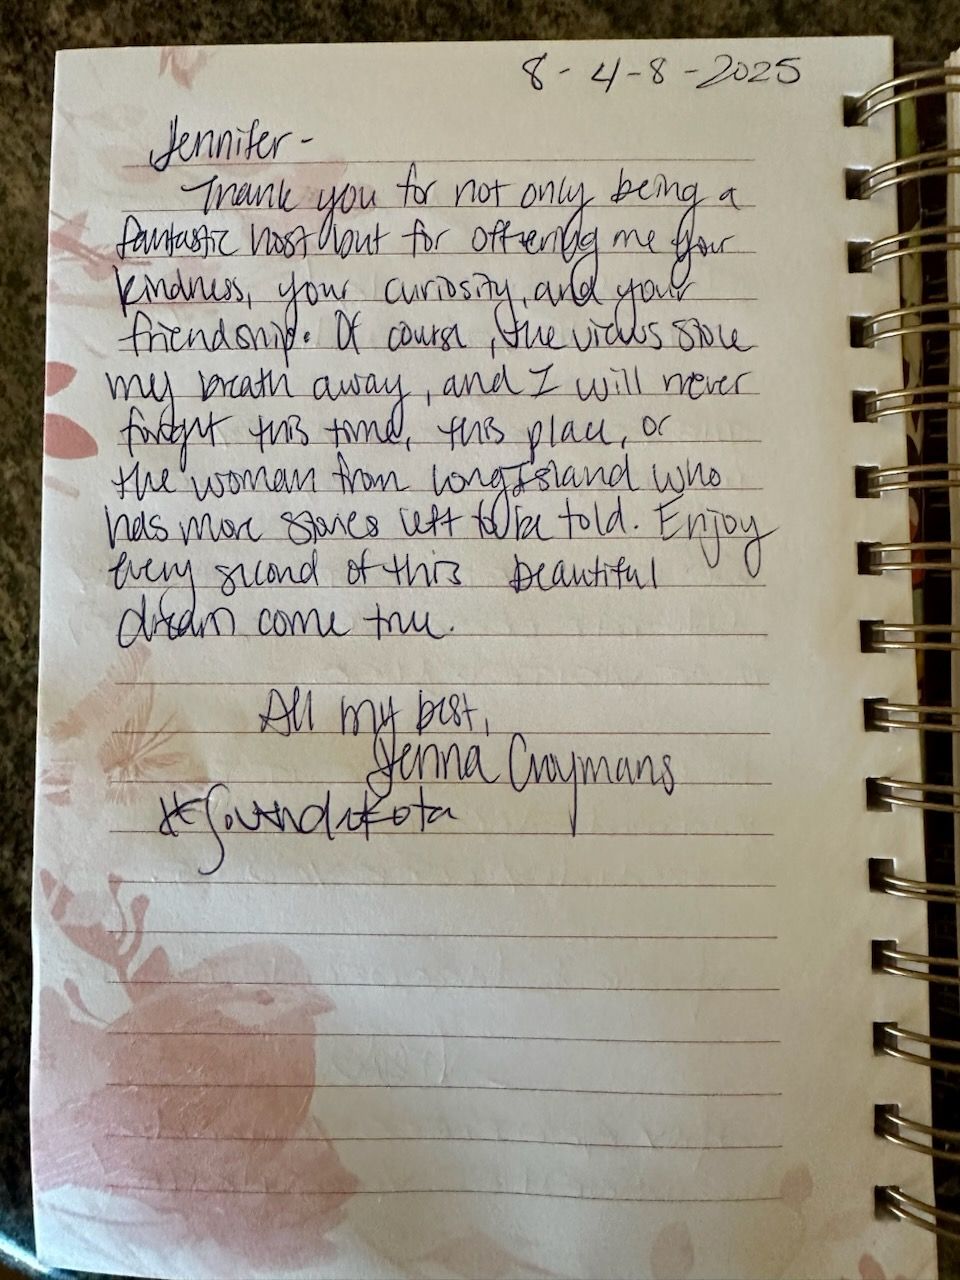 8-4-8-2025
Jennifer-
Thank you for not only being a
fantastic host but for offering me your
kindness, your curiosity, and your
friendship. Of course, the views stole
my breath away, and I will never
forget this time, this place, or
the woman from Long Island who
has more stories left to be told. Enjoy
every second of this beautiful
dream come true.
All my best,
Jenna Croymans
#Southdakota